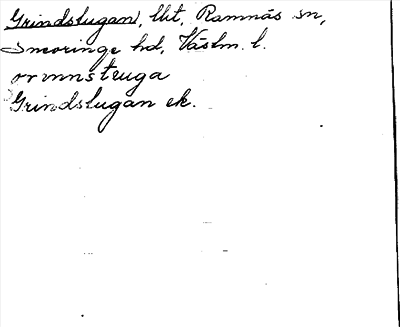 Grindstugan, lht, Ramnäs sn,
Snevringe hd, Västm. l.
ormnstuga
Grindstugan ek.